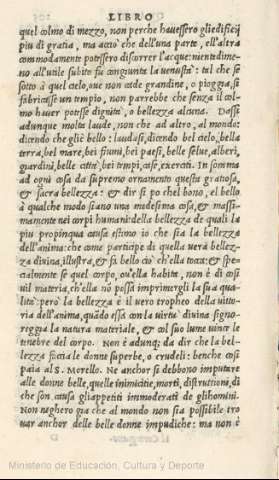 LIBRO
quel colmo di mezzo, non perche hauessero gliedificij
piu di gratia, ma acciò che dell'una parte, ell'altra
commodamente potessero discorrer l'acque: nientedime=
no all'utile subito fu congiunta la uenustà: tal che se
sotto à quel cielo, oue non cade grandine, o pioggia, si
fabricasse un tempio, non parrebbe che senza il col=
mo hauer potesse dignità, o bellezza alcuna. Dassi
adunque molta laude, non che ad altro, al mondo:
dicendo che gliè bello: laudasi, dicendo bel cielo, bella
terra, bel mare, bei fiumi, bei paesi, belle selue, alberi,
giardini, belle città, bei tempi, case, exerciti. In somma
ad ogni cosa da supremo ornamento questa gratiosa,
et sacra bellezza: et dir si po chel bono, el bello
à qualche modo siano una medesima cosa, et massi=
mamente nei corpi humani: della bellezza de quali la
piu propinqua causa estimo io che sia la bellezza
dell'anima: che come participe di quella uera bellez=
za diuina, illustra, et fa bello ciò ch'ella tocca: et spe=
cialmente se quel corpo, ou'ella habita, non è di cosi
uil materia, ch'ella nõ possa imprimergli la sua qua=
lità: però la bellezza è il uero tropheo della uitto=
ria dell'anima, quãdo essa con la uirtu diuina signo=
reggia la natura materiale, et col suo lume uince le
tenebre del corpo. Non è adunq; da dir che la bel=
lezza faccia le donne superbe, o crudeli: benche cosi
paia al S. Morello. Ne anchor si debbono imputare
alle donne belle, quelle inimicitie, morti, distruttioni, di
che son causa gliappetiti immoderati de glihomini.
Non neghero gia che al mondo non sia possibile tro
uar anchor delle belle donne impudiche: ma non è
Ministerio de Educación, Cultura y Deporte